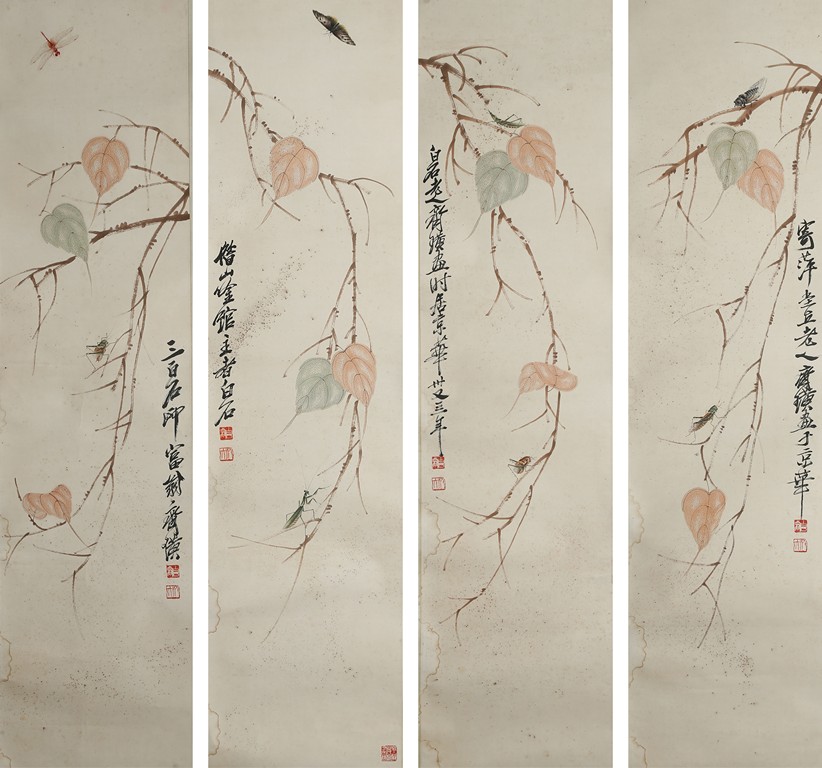 寄萍堂上老人齊璜畫于京華
白石老人齊璜畫時居京華卅又三年
借山唫館主者白石
三百石印富翁齊璜